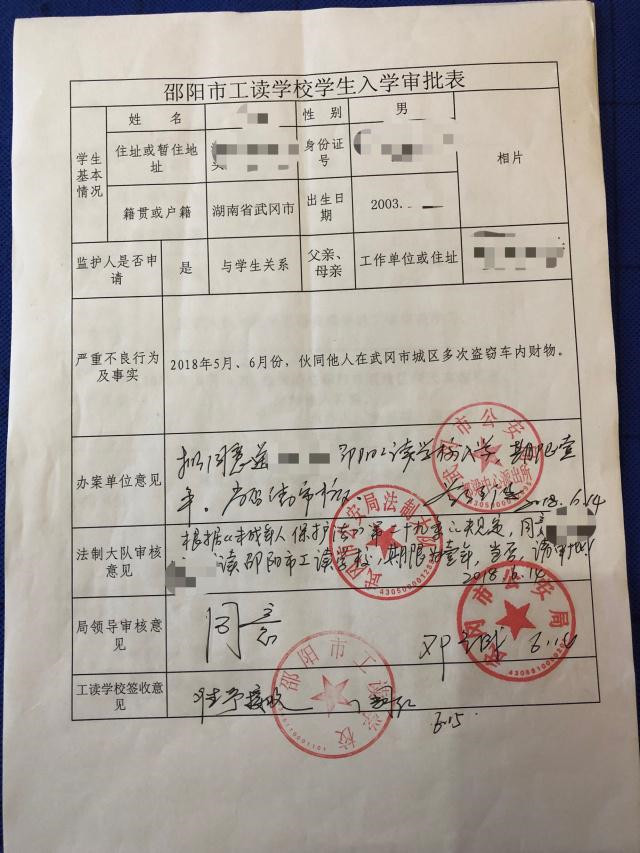 邵阳市工读学校学生入学审批表
学生基本情况
姓 名
性 别
男
相片
住址或暂住地址
身份证号
籍贯或户籍
湖南省武冈市
出生日期
2003.
监护人是否申请
是
与学生关系
父亲、母亲
工作单位或住址
严重不良行为及事实
2018年5月、6月份，伙同他人在武冈市城区多次盗窃车内财物。
办案单位意见
拟同意送
邵阳工读学校入学 期限壹
年。
2018.6.14
法制大队审核意见
根据《未成年人保护法》第二十九条之规定，同意
读邵阳市工读学校，期限为壹年，当否，请审批
2018.6.14
局领导审核意见
同意
6.14
工读学校签收意见
准予接收
6.15
武冈市公安局
邵阳市工读学校